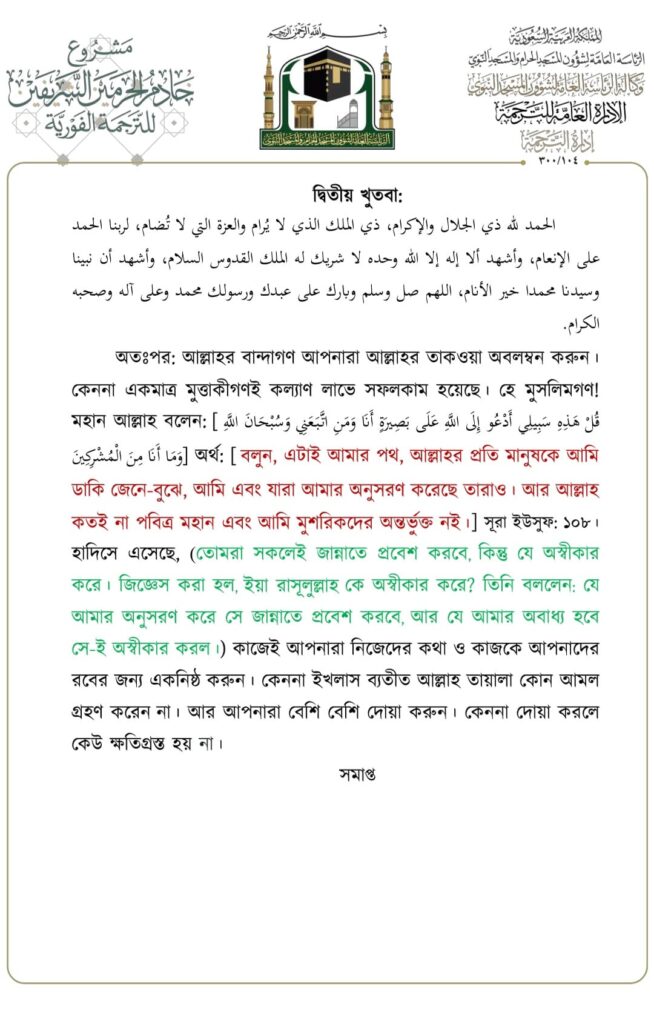 مشروع
خادم الحرمين الشريفين
للترجمة الفورية
بسم الله الرحمن الرحيم
الرئاسة العامة لشؤون المسجد الحرام والمسجد النبوي
المملكة العربية السعودية
الرئاسة العامة لشؤون المسجد الحرام والمسجد النبوي
وكالة الرئاسة العامة لشؤون المسجد النبوي
الإدارة العامة للترجمة
إدارة الترجمة
٣٠٠/١٠٤
দ্বিতীয় খুতবা:
الحمد لله ذي الجلال والإكرام، ذي الملك الذي لا يُرام والعزة التي لا تُضام، لربنا الحمد
على الإنعام، وأشهد ألا إله إلا الله وحده لا شريك له الملك القدوس السلام، وأشهد أن نبينا
وسيدنا محمدا خير الأنام، اللهم صل وسلم وبارك على عبدك ورسولك محمد وعلى آله وصحبه
الكرام.
অতঃপর: আল্লাহর বান্দাগণ আপনারা আল্লাহর তাকওয়া অবলম্বন করুন।
কেননা একমাত্র মুত্তাকীগণই কল্যাণ লাভে সফলকাম হয়েছে। হে মুসলিমগণ!
মহান আল্লাহ বলেন: [ قُلْ هَذِهِ سَبِيلِي أَدْعُو إِلَى اللَّهِ عَلَى بَصِيرَةٍ أَنَا وَمَنِ اتَّبَعَنِي وَسُبْحَانَ اللَّهِ
وَمَا أَنَا مِنَ الْمُشْرِكِينَ] অর্থ: [ বলুন, এটাই আমার পথ, আল্লাহর প্রতি মানুষকে আমি
ডাকি জেনে-বুঝে, আমি এবং যারা আমার অনুসরণ করেছে তারাও। আর আল্লাহ
কতই না পবিত্র মহান এবং আমি মুশরিকদের অন্তর্ভুক্ত নই।] সূরা ইউসুফ: ১০৮।
হাদিসে এসেছে, (তোমরা সকলেই জান্নাতে প্রবেশ করবে, কিন্তু যে অস্বীকার
করে। জিজ্ঞেস করা হল, ইয়া রাসূলুল্লাহ কে অস্বীকার করে? তিনি বললেন: যে
আমার অনুসরণ করে সে জান্নাতে প্রবেশ করবে, আর যে আমার অবাধ্য হবে
সে-ই অস্বীকার করল।) কাজেই আপনারা নিজেদের কথা ও কাজকে আপনাদের
রবের জন্য একনিষ্ঠ করুন। কেননা ইখলাস ব্যতীত আল্লাহ তায়ালা কোন আমল
গ্রহণ করেন না। আর আপনারা বেশি বেশি দোয়া করুন। কেননা দোয়া করলে
কেউ ক্ষতিগ্রস্ত হয় না।
সমাপ্ত